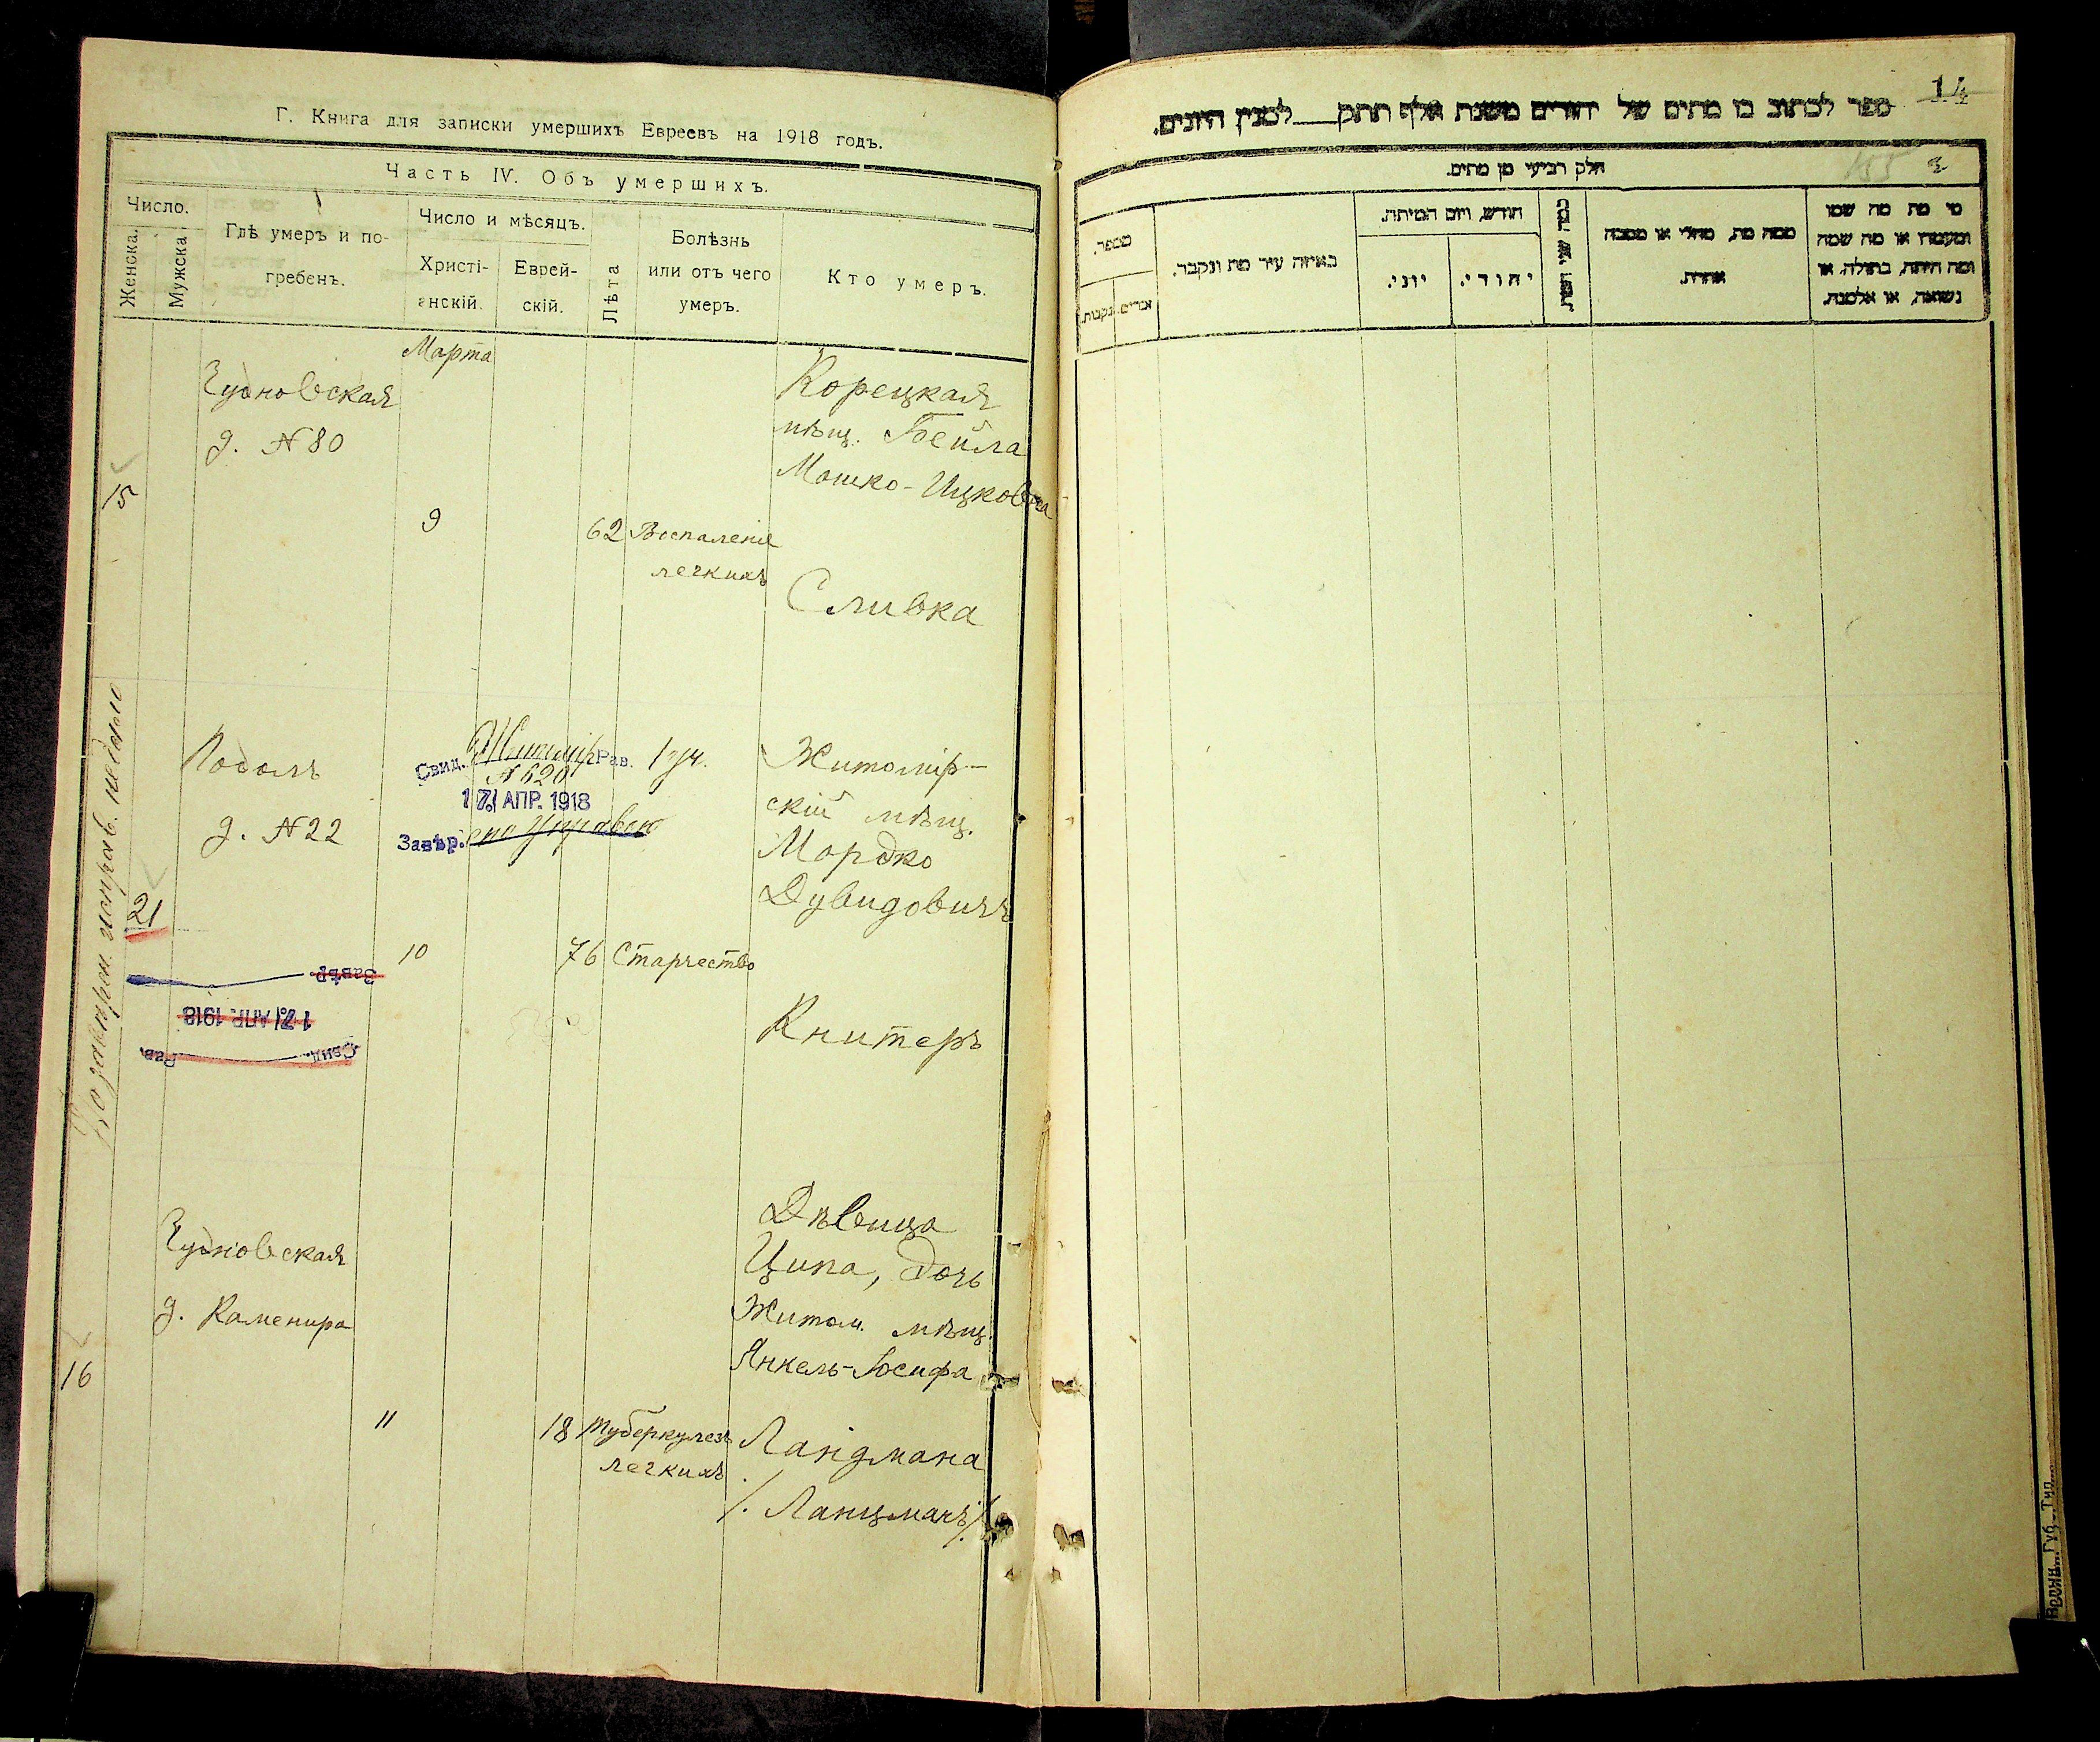 Г. Книга для записки умершихъ Евреевъ на 1918 годъ.
Часть IV. Объ умершихъ.
Число.
Женска.
Мужска.
Гдѣ умеръ и по-
гребенъ.
Число и мѣсяцъ.
Христі-
анскій.
Еврей-
скій.
Лѣта
Болѣзнь
или отъ чего
умеръ.
Кто умеръ.
Марта
15
Чудновская
д. №80
9
62
Воспаленіе
легкихъ
Корецкая
мѣщ. Бейла
Мошко-Ицковна
Сливка
21
Подолъ
д. №22
Свид. Житомір Рав.
№620
17/ АПР. 1918
Завѣр.
10
76
Старчество
Житомір-
скій мѣщ.
Мордко
Дувидовичъ
Книтеръ
Завѣр.
17/ АПР. 1918
Свид. Рав.
16
Чудновская
д. Каменира
11
18
Туберкулезъ
легкихъ
Дѣвица
Ципа, дочь
Житом. мѣщ.
Янкель-Іосифа
Ландмана
/. Ланцманъ /.
14
ספר לכתוב בו מתים של יהודים משנת אלף תתק___למנין היונים.
חלק רביעי מן מתים.
מספר.
נקבות.
זכרים.
באיזה עיר מת ונקבר.
חודש, ויום המיתה.
יוני.
יהודי.
ממה מת, מחלי או מסבה
אחרת.
מי מת מה שמו
ומעמדו או מה שמה
ומה היתה, בתולה, או
נשואה, או אלמנה.
Волын. Губ. Тип.